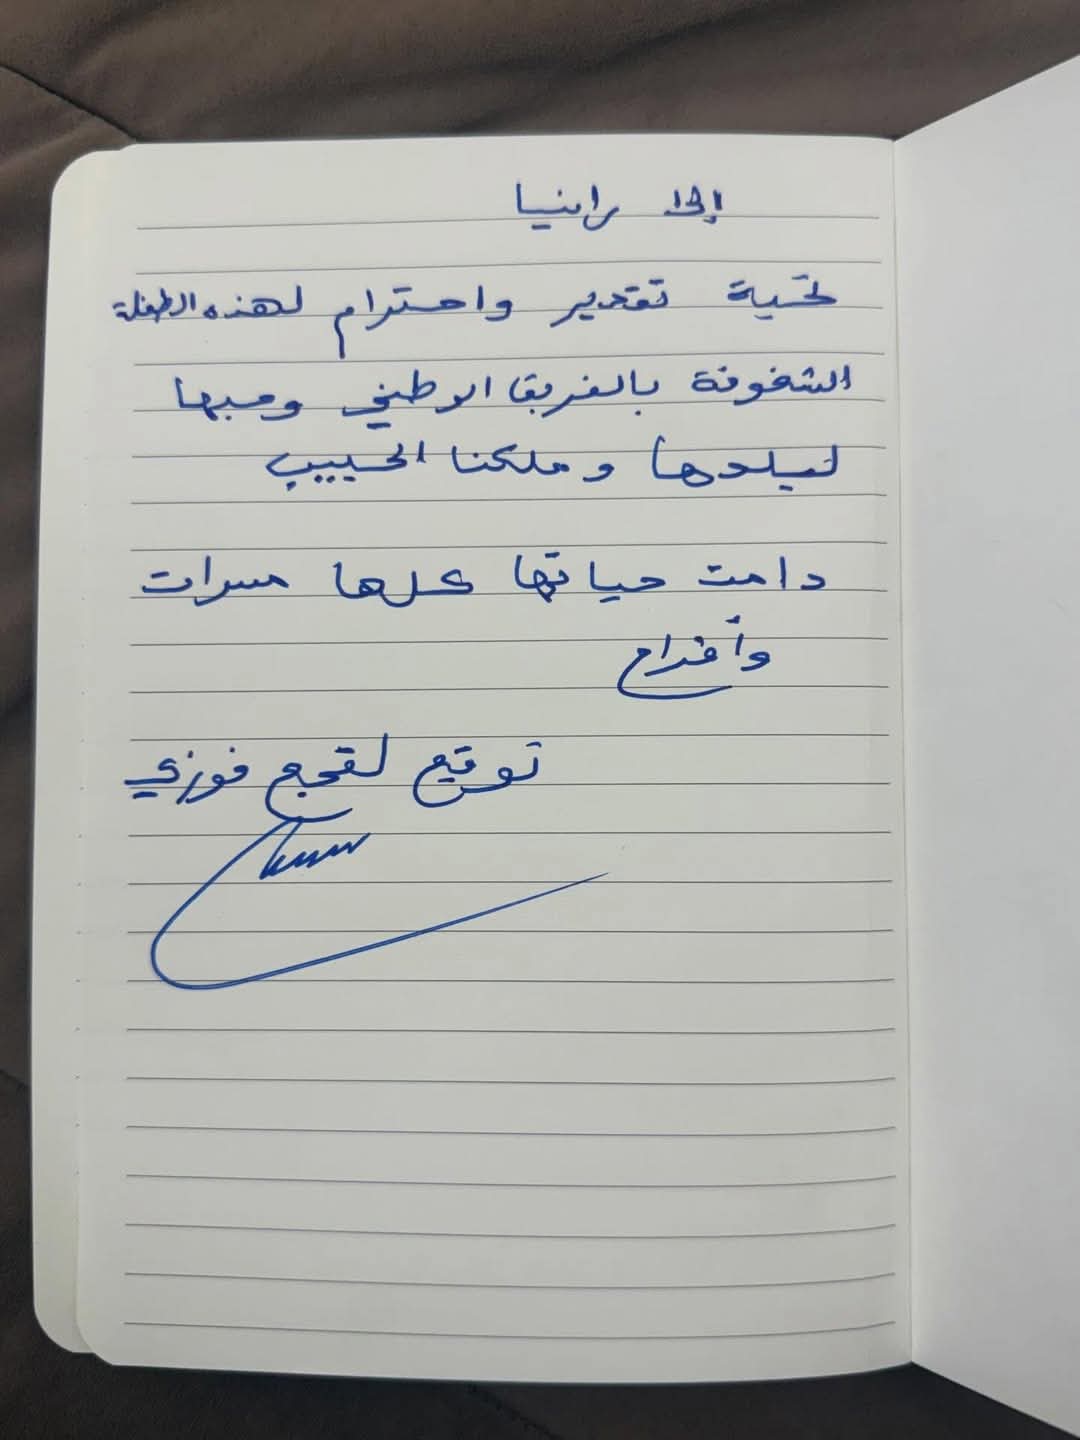 إلى رانيا
تحية تقدير واحترام لهذه الطفلة
الشغوفة بالفريق الوطني وحبها
لبلدها وملكنا الحبيب
دامت حياتها كلها مسرات
وأفراح
توقيع لقجع فوزي